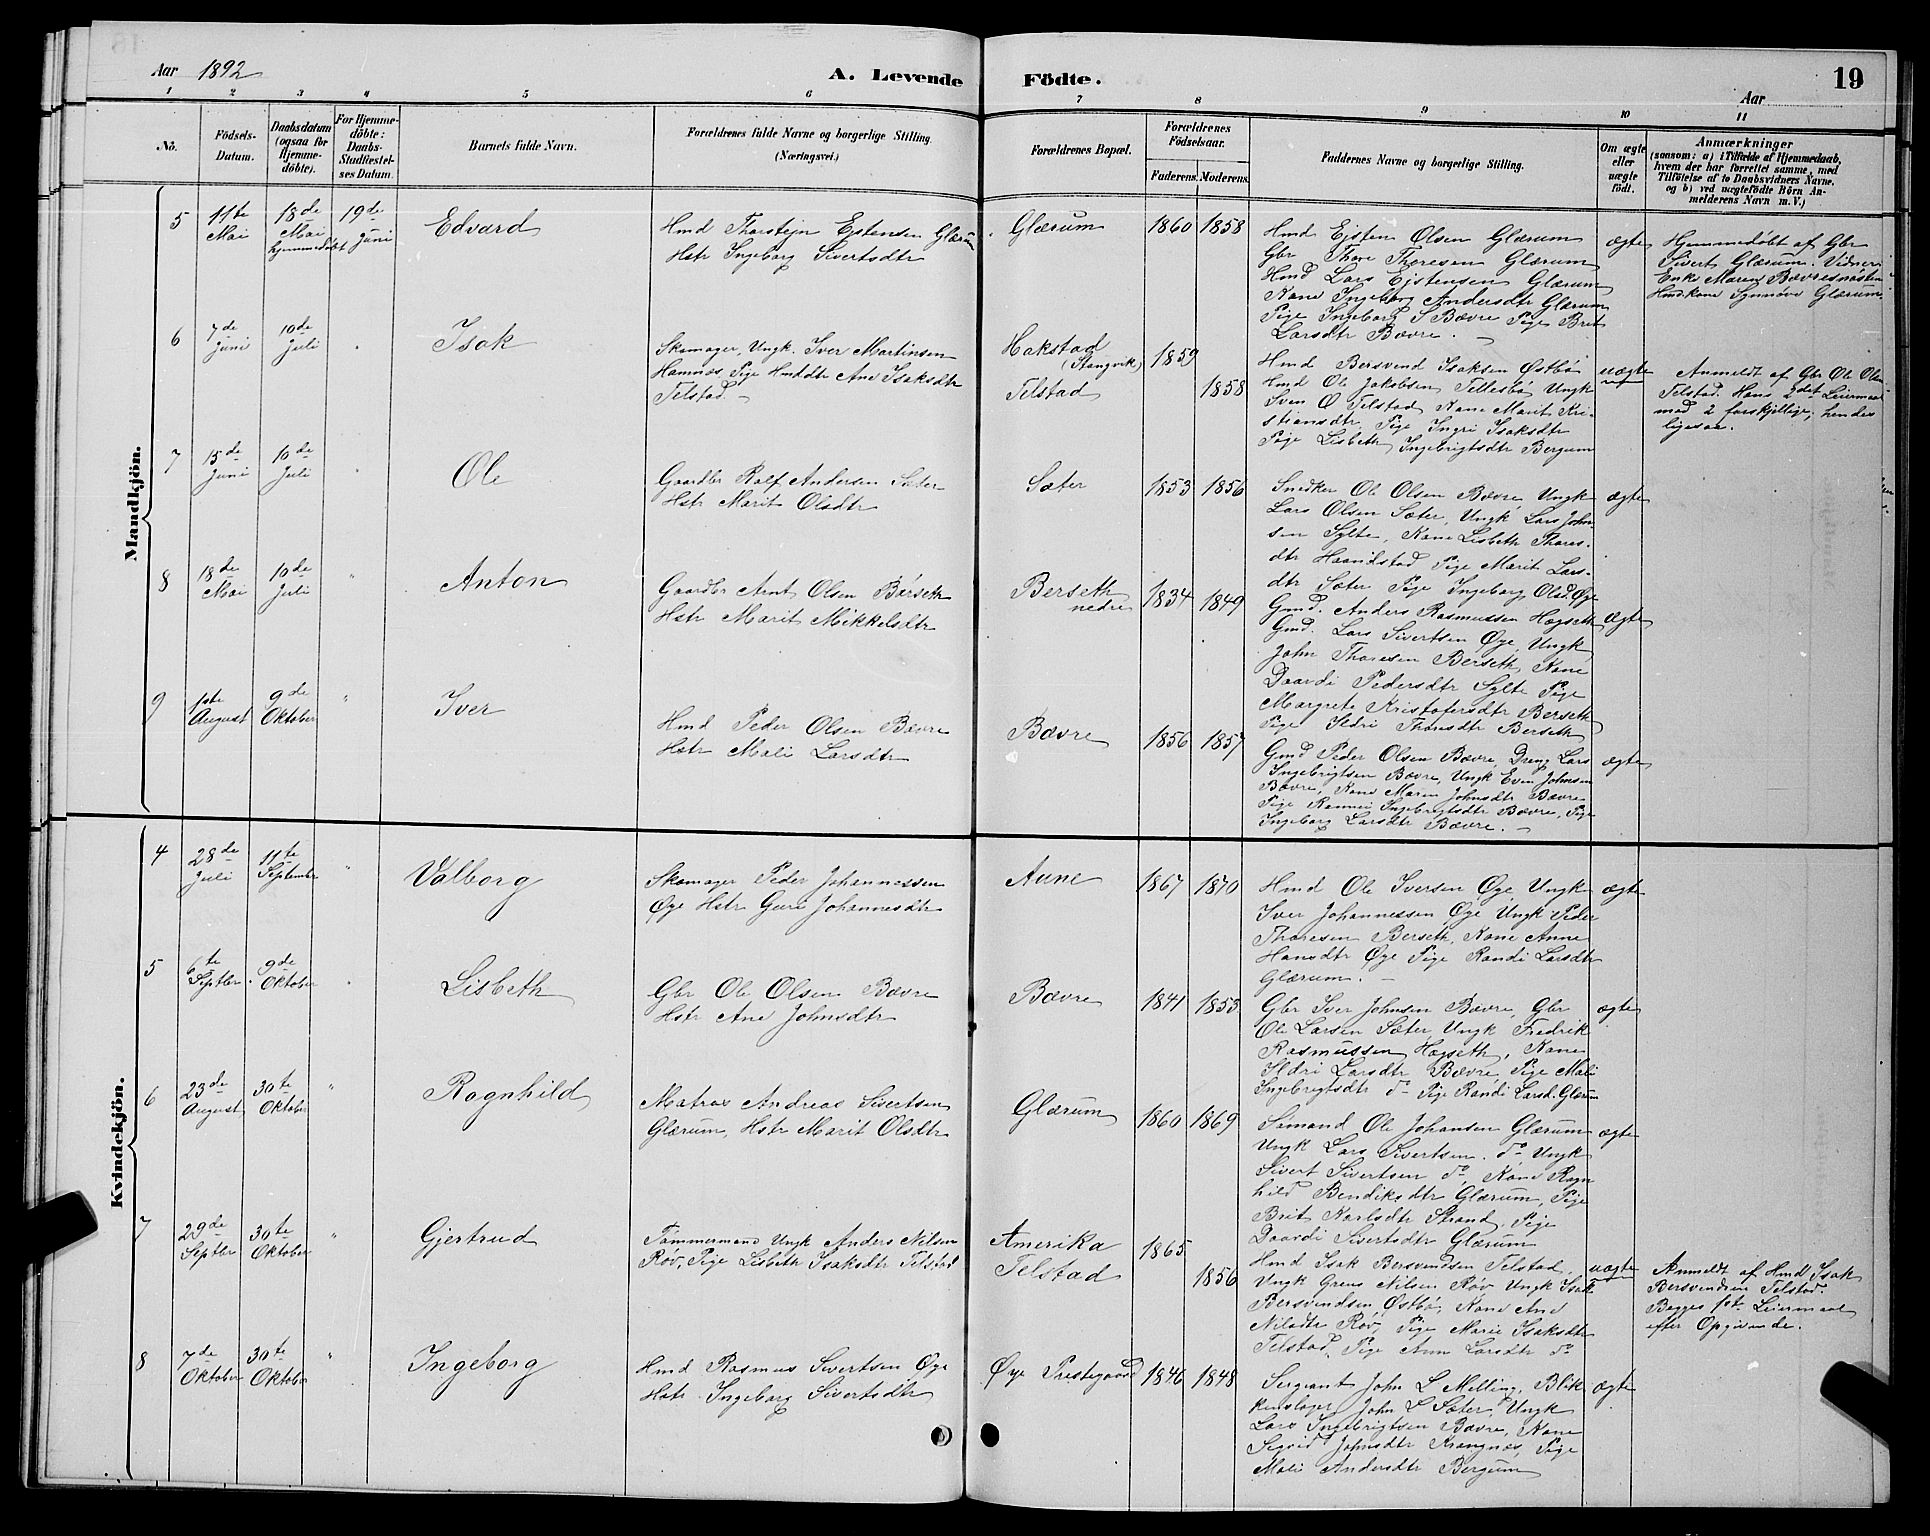 Aar 1892
A. Levende
Födte.
19
Aar
1 2 3 4 5 6 7 8 9 10 11
No.
Födsels-
Datum.
Daabsdatum
(ogsaa for
Hjemme-
döbte).
For Hjemme-
döbte:
Daabs-
Stadfæstel-
ses Datum.
Barnets fulde Navn.
Forældrenes fulde Navne og borgerlige Stilling.
(Næringsvei.)
Forældrenes Bopæl.
Forældrenes
Födselsaar.
Faderens. Moderens.
Faddernes Navne og borgerlige Stilling.
Om ægte
eller
uægte
født.
Anmærkninger
(saasom: a) i Tilfælde af Hjemmedaab,
hvem der har forrettet samme, med
Tilföielse af to Daabsvidners Navne,
og b) ved uægtefödte Börn An-
melderens Navn m. V.)
Mandkjön.
5
11te
Mai
18de
Mai
hjemmedöbt
19de
Juni
Edvard
Hmd Thorstejn Ejstensen Glærum
Hstr Ingeborg Sivertsdtr
Glærum
1860 1858
Hmd Ejsten Olsen Glærum
Gbr Thore Thoresen Glærum
Hmd Lars Ejstensen Glærum
Kone Ingeborg Andersdtr Glærum
Pige Ingeborg S Bævre Pige Brit
Larsdtr Bævre.
ægte
Hjemmedøbt af Gbr
Sivert Glærum. Vidner
Enke Maren Bævresnøsten
Hmdkone Synnøve Glærum.
6
7de
Juni
10de
Juli
Isak
Skomager, Ungk. Iver Martinsen
Hamnes, Pige Hmddtr Ane Isaksdtr
Telstad
Hakstad
(Stangvik)
Telstad
1859
1858
Hmd Bersvend Isaksen Østbø
Hmd Ole Jakobsen Tellesbø Ungk
Sven O Telstad, Kone Marit Kri-
stiansdtr, Pige Ingri Isaksdtr
Pige Lisbeth Ingebrigtsdtr Bergum
uægte
Anmeldt af Gbr Ole Olsen
Telstad. Hans 2det Leiermaal
med 2 forskjellige, hendes
ligesaa.
7
15de
Juni
10de
Juli
Ole
Gaardbr Rolf Andersen Sæter
Hstr Marit Olsdtr
Sæter
1853 1856
Snedker Ole Olsen Bævre Ungk
Lars Olsen Sæter, Ungk Lars John-
sen Sylte, Kone Lisbeth Thores-
dtr Haandstad Pige Marit Lars-
dtr Sæter Pige Ingeborg Olsd. Øye
ægte
8
18de
Mai
10de
Juli
Anton
Gaardbr Arnt Olsen Bérseth
Hstr Marit Mikkelsdtr
Berseth
nedre
1834 1849
Gmd. Anders Rasmussen Hogseth
Gmd. Lars Sivertsen Øye, Ungk
John Thoresen Berseth, Kone
Daardi Pedersdtr Sylte Pige
Margrete Kristofersdtr Berseth
Pige Ildri Thorsdtr Berseth
ægte
9
1ste
August
9de
Oktober
Iver
Hmd Peder Olsen Bævre
Hstr Mali Larsdtr
Bævre
1856 1857
Gmd Peder Olsen Bævre, Dreng Lars
Ingebrigtsen Bævre, Ungk Even Johnsen
Bævre, Kone Maren Johnsdtr Bævre
Pige Rannei Ingebrigtsdtr Bævre, Pige
Ingeborg Larsdtr Bævre.
ægte
Kvindekjön.
4
28de
Juli
11te
September
Valborg
Skomager Peder Johannessen
Øye Hstr Guri Johannesdtr
Aune
1867 1870
Hmd Ole Iversen Øye Ungk
Iver Johannessen Øye Ungk Peder
Thoresen Berseth, Kone Anne
Hansdtr Øye Pige Randi Larsdtr
Glærum.
ægte
5
6te
Septbr
9de
Oktober
Lisbeth
Gbr Ole Olsen Bævre
Hstr Ane Johnsdtr
Bævre
1841 1853
Gbr Iver Johnsen Bævre, Gbr
Ole Larsen Sæter Ungk Fredrik
Rasmussen Hogseth, Kone
Ildri Larsdtr Bævre Pige Mali
Ingebrigtsdtr do Pige Randi Larsd. Glærum
ægte
6
23de
August
30te
Oktober
Ragnhild
Matros Andreas Sivertsen
Glærum, Hstr Marit Olsdtr
Glærum
1860 1869
Sømand Ole Johansen Glærum
Ungk Lars Sivertsen do Ungk
Sivert Sivertsen do, Kone Ragn
hild Bendiksdtr Glærum, Pige
Brit Karlsdtr Strand, Pige
Daardi Sivertsdtr Glærum
ægte
7
29de
Septbr
30te
Oktober
Gjertrud
Tømmermand Ungk Anders Nilsen
Røv, Pige Lisbeth Isaksdtr Telstad
Amerika
Telstad
1865
1856
Hmd Isak Bersvendsen Telstad,
Ungk Grens Nilsen Røv Ungk Isak
Bersvendsen Østbø, Kone Ane
Nilsdtr Røv, Pige Marie Isaksdtr
Telstad, Pige Ann Larsdtr do
uægte
Anmeldt af Hmd Isak
Bersvendsen Telstad.
Begges 1ste Leiermaal
efter Opgivende.
8
7de
Oktober
30te
Oktober
Ingeborg
Hmd Rasmus Sivertsen Øye
Hstr Ingeborg Sivertsdtr
Øye Prestegaard
1846 1848
Sergeant John L Melling, Blik
kenslager John L Sæter, Ungk
Lars Ingebrigtsen Bævre, Kone
Sigrid Johnsdtr Krangnes, Pige
Mali Andersdtr Bergum
ægte